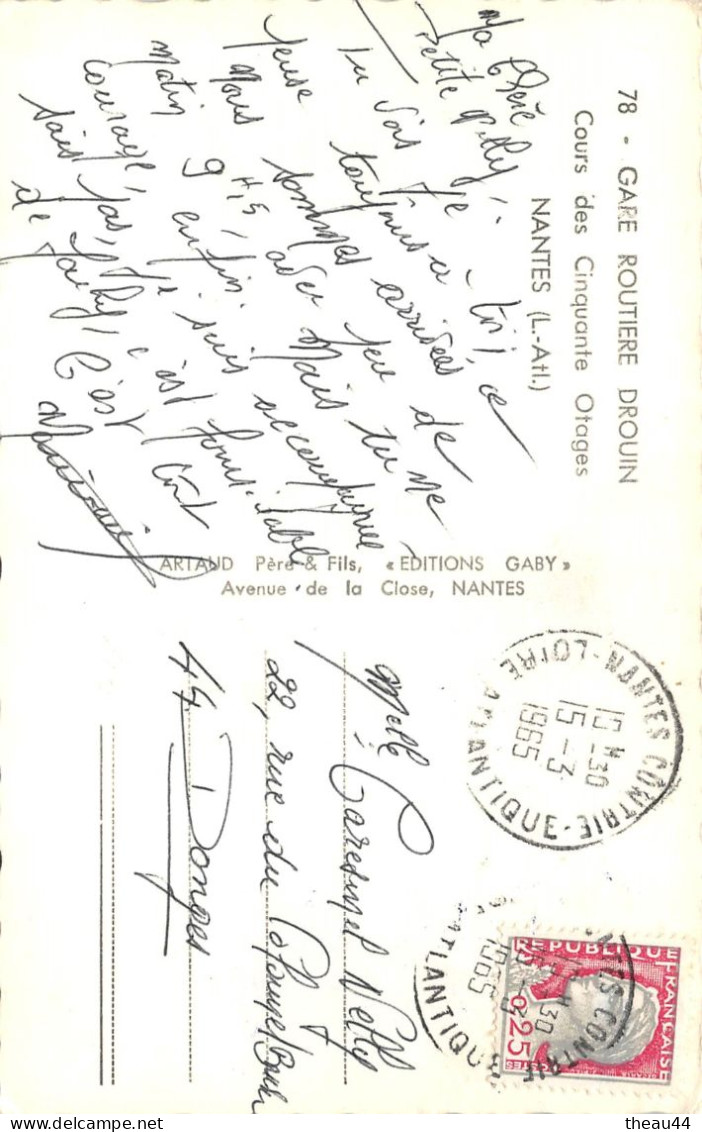 78 - GARE ROUTIERE DROUIN
Cours des Cinquante Otages
NANTES (L.-Atl.)
Ma Chère
Petite Nelly,
Tu vois je
pense toujours à toi, ce
Nous sommes arrivées
Matin 9 H,5, avec peu de
courage, enfin. Mais tu me
sais pas, je suis accompagnée
de Jacky, c'est formidable
C'est tout
ARTAUD Père & Fils, « EDITIONS GABY »
Avenue de la Close, NANTES
NANTES CONTRIE - LOIRE ATLANTIQUE
15 H 30
15 - 3
1965
REPUBLIQUE FRANÇAISE
0,25
POSTES
Melle Nelly
22, rue du
44. Donges
theau44